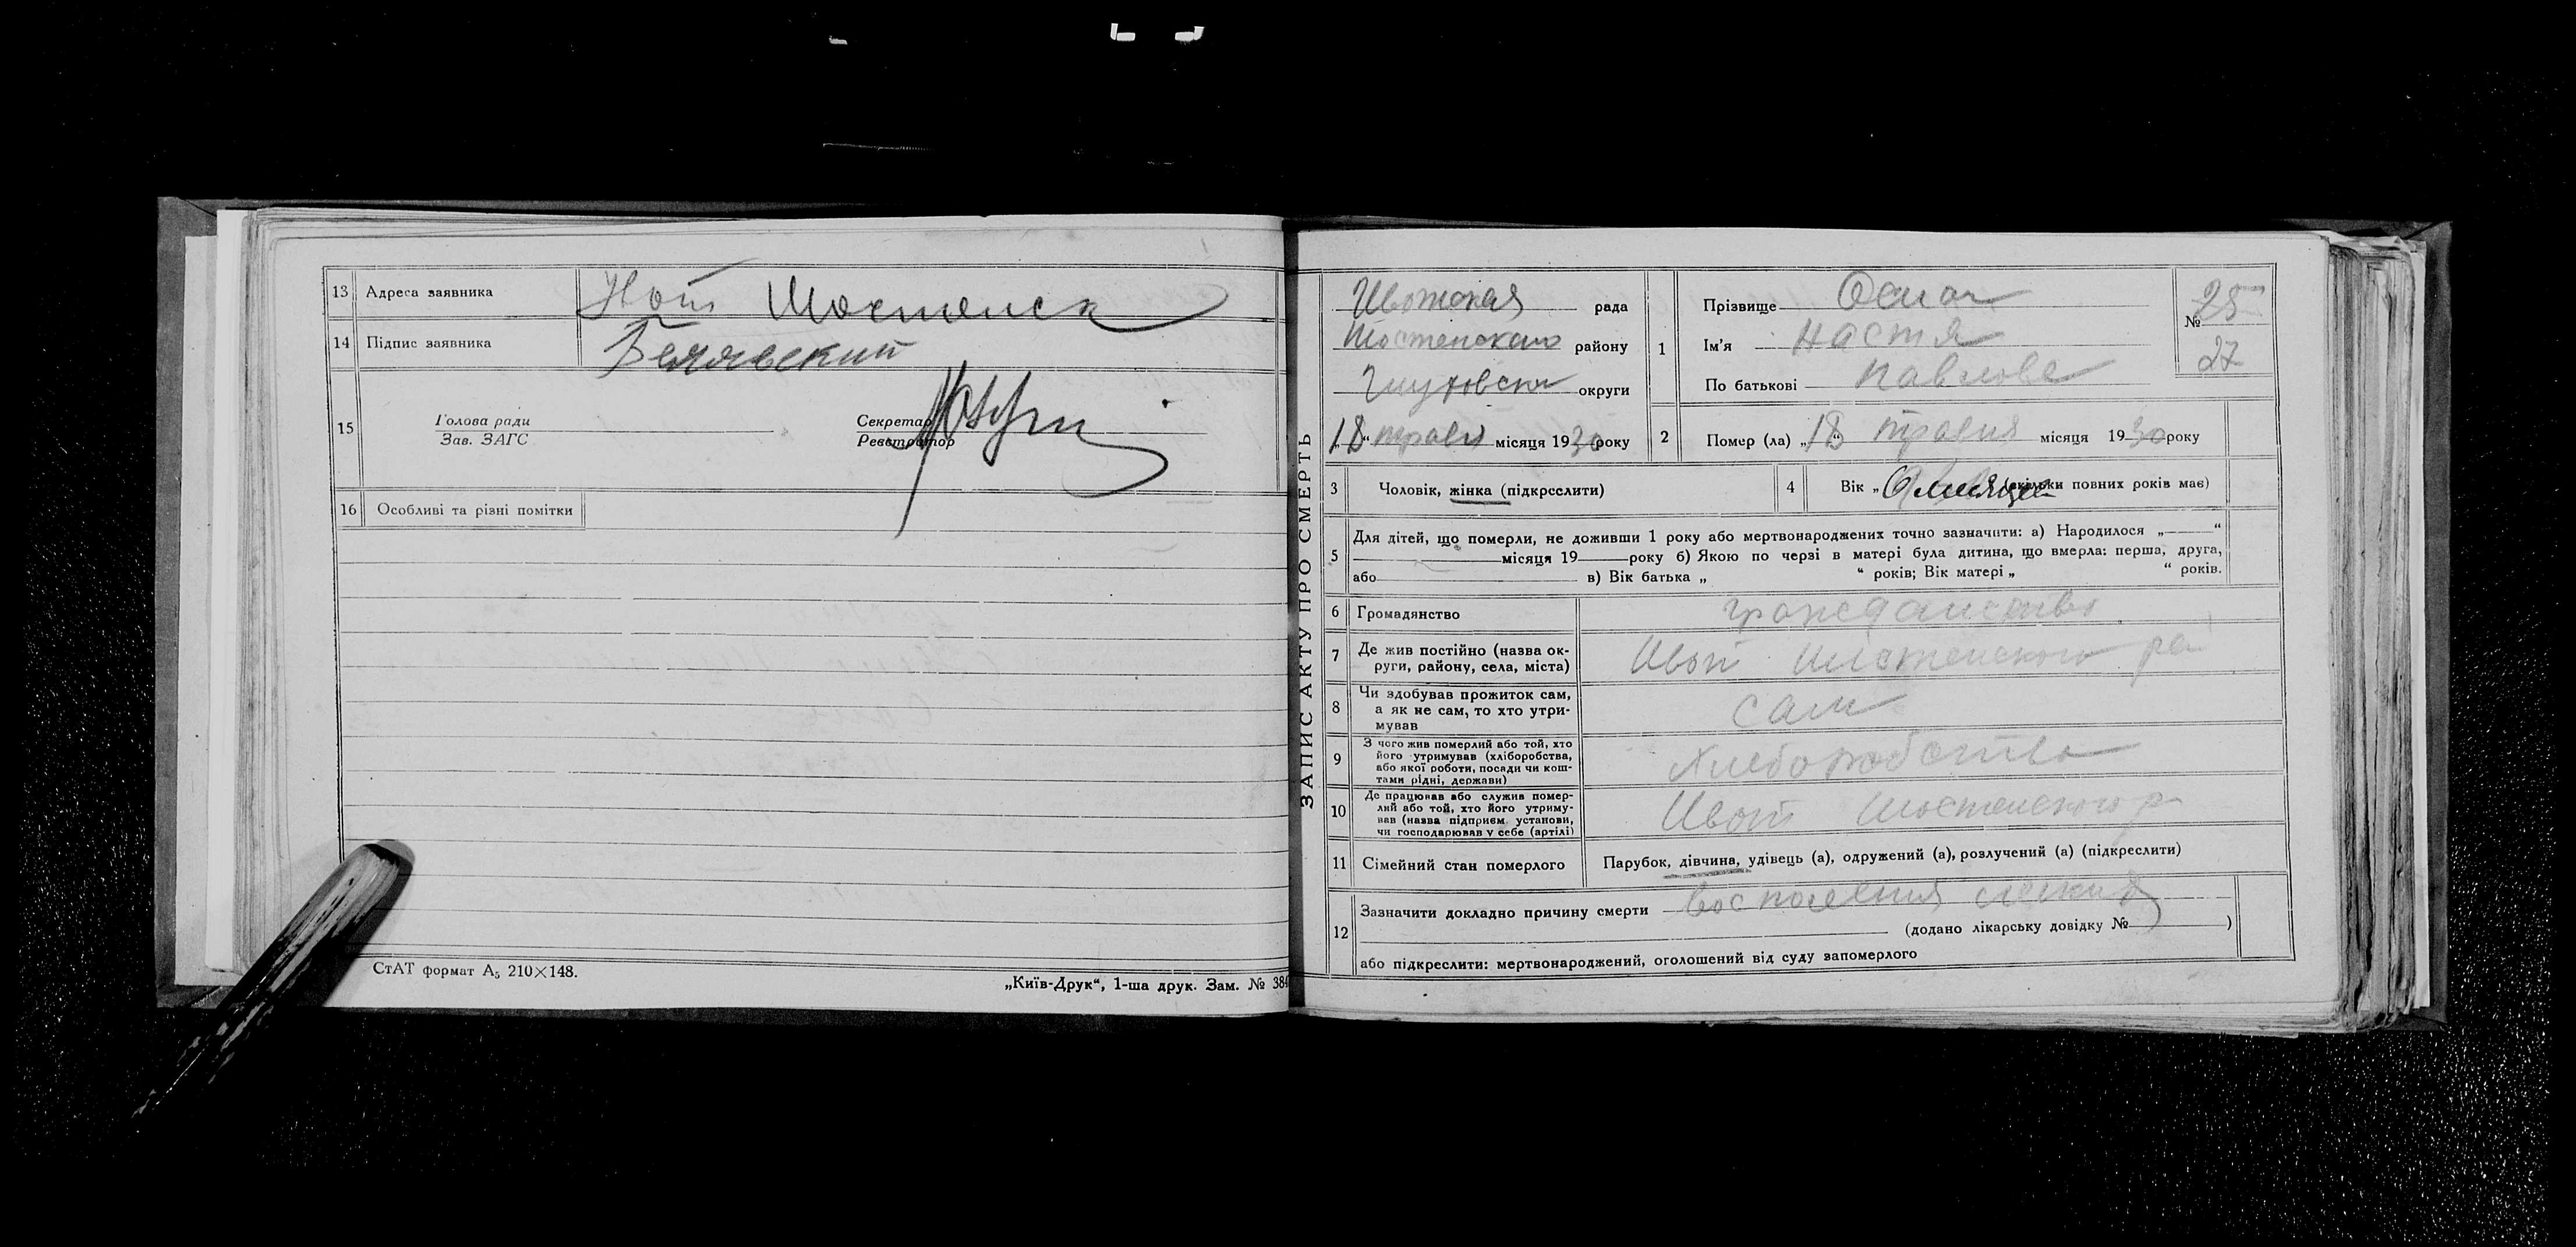 13 Адреса заявника Ивот Шостенск
14 Підпис заявника Белявский
15 Голова ради Зав. ЗАГС Секретар Реєстратор
16 Особливі та різні помітки
СтАТ формат А₅ 210×148.
„Київ-Друк“, 1-ша друк. Зам. № 384
ЗАПИС АКТУ ПРО СМЕРТЬ
Ивотская рада
Шостенского району
Глуховской округи
„18“ травня місяця 1930 року
1 Прізвище
Ім'я Настя
По батькові Павлова
№ 25
27
2 Помер (ла) „18“ травня місяця 1930 року
3 Чоловік, жінка (підкреслити)
4 Вік „ месяцев (скільки повних років має)
5 Для дітей, що померли, не доживши 1 року або мертвонароджених точно зазначити: а) Народилося „ “
місяця 19 року б) Якою по черзі в матері була дитина, що вмерла: перша, друга,
або в) Вік батька „ “ років; Вік матері „ “ років.
6 Громадянство гражданство
7 Де жив постійно (назва ок-
руги, району, села, міста) Ивот Шостенского ра
8 Чи здобував прожиток сам,
а як не сам, то хто утри-
мував сам
9 З чого жив померлий або той, хто
його утримував (хліборобства,
або якої роботи, посади чи кош-
тами рідні, держави) Хлеборобство
10 Де працював або служив помер-
лий або той, хто його утриму-
вав (назва підприєм. установи,
чи господарював у себе (артілі) Ивот Шостенского р
11 Сімейний стан померлого Парубок, дівчина, удівець (а), одружений (а), розлучений (а) (підкреслити)
12 Зазначити докладно причину смерти воспаления легких
(додано лікарську довідку № )
або підкреслити: мертвонароджений, оголошений від суду запомерлого